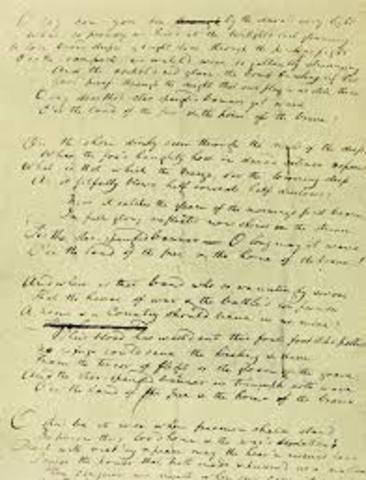 O say can you see by the dawn's early light
What so proudly we hail'd at the twilight's last gleaming
through the perilous fight
O'er the ramparts we watch'd were so gallantly streaming
And the rocket's red glare, the bomb bursting in air
Gave proof through the night that our flag was still there
O say does that star-spangled banner yet wave
O'er the land of the free & the home of the brave?
On the shore dimly seen through the mists of the deep
Where the foe's haughty host in dread silence reposes
What is that which the breeze, o'er the towering steep
As it fitfully blows half conceals half discloses?
Now it catches the gleam of the morning's first beam
In full glory reflected now shines in the stream
'Tis the star-spangled banner — O long may it wave
O'er the land of the free & the home of the brave!
And where is that band who so vauntingly swore
That the havoc of war & the battle's confusion
A home & a Country should leave us no more?
Their blood has wash'd out their foul footstep's pollution
No refuge could save the hireling & slave
From the terror of flight or the gloom of the grave
And the star-spangled banner in triumph doth wave
O'er the land of the free & the home of the brave
O thus be it ever when freemen shall stand
Between their lov'd home & the war's desolation!
Blest with vict'ry & peace may the heav'n rescued land
Praise the power that hath made & preserv'd us a nation